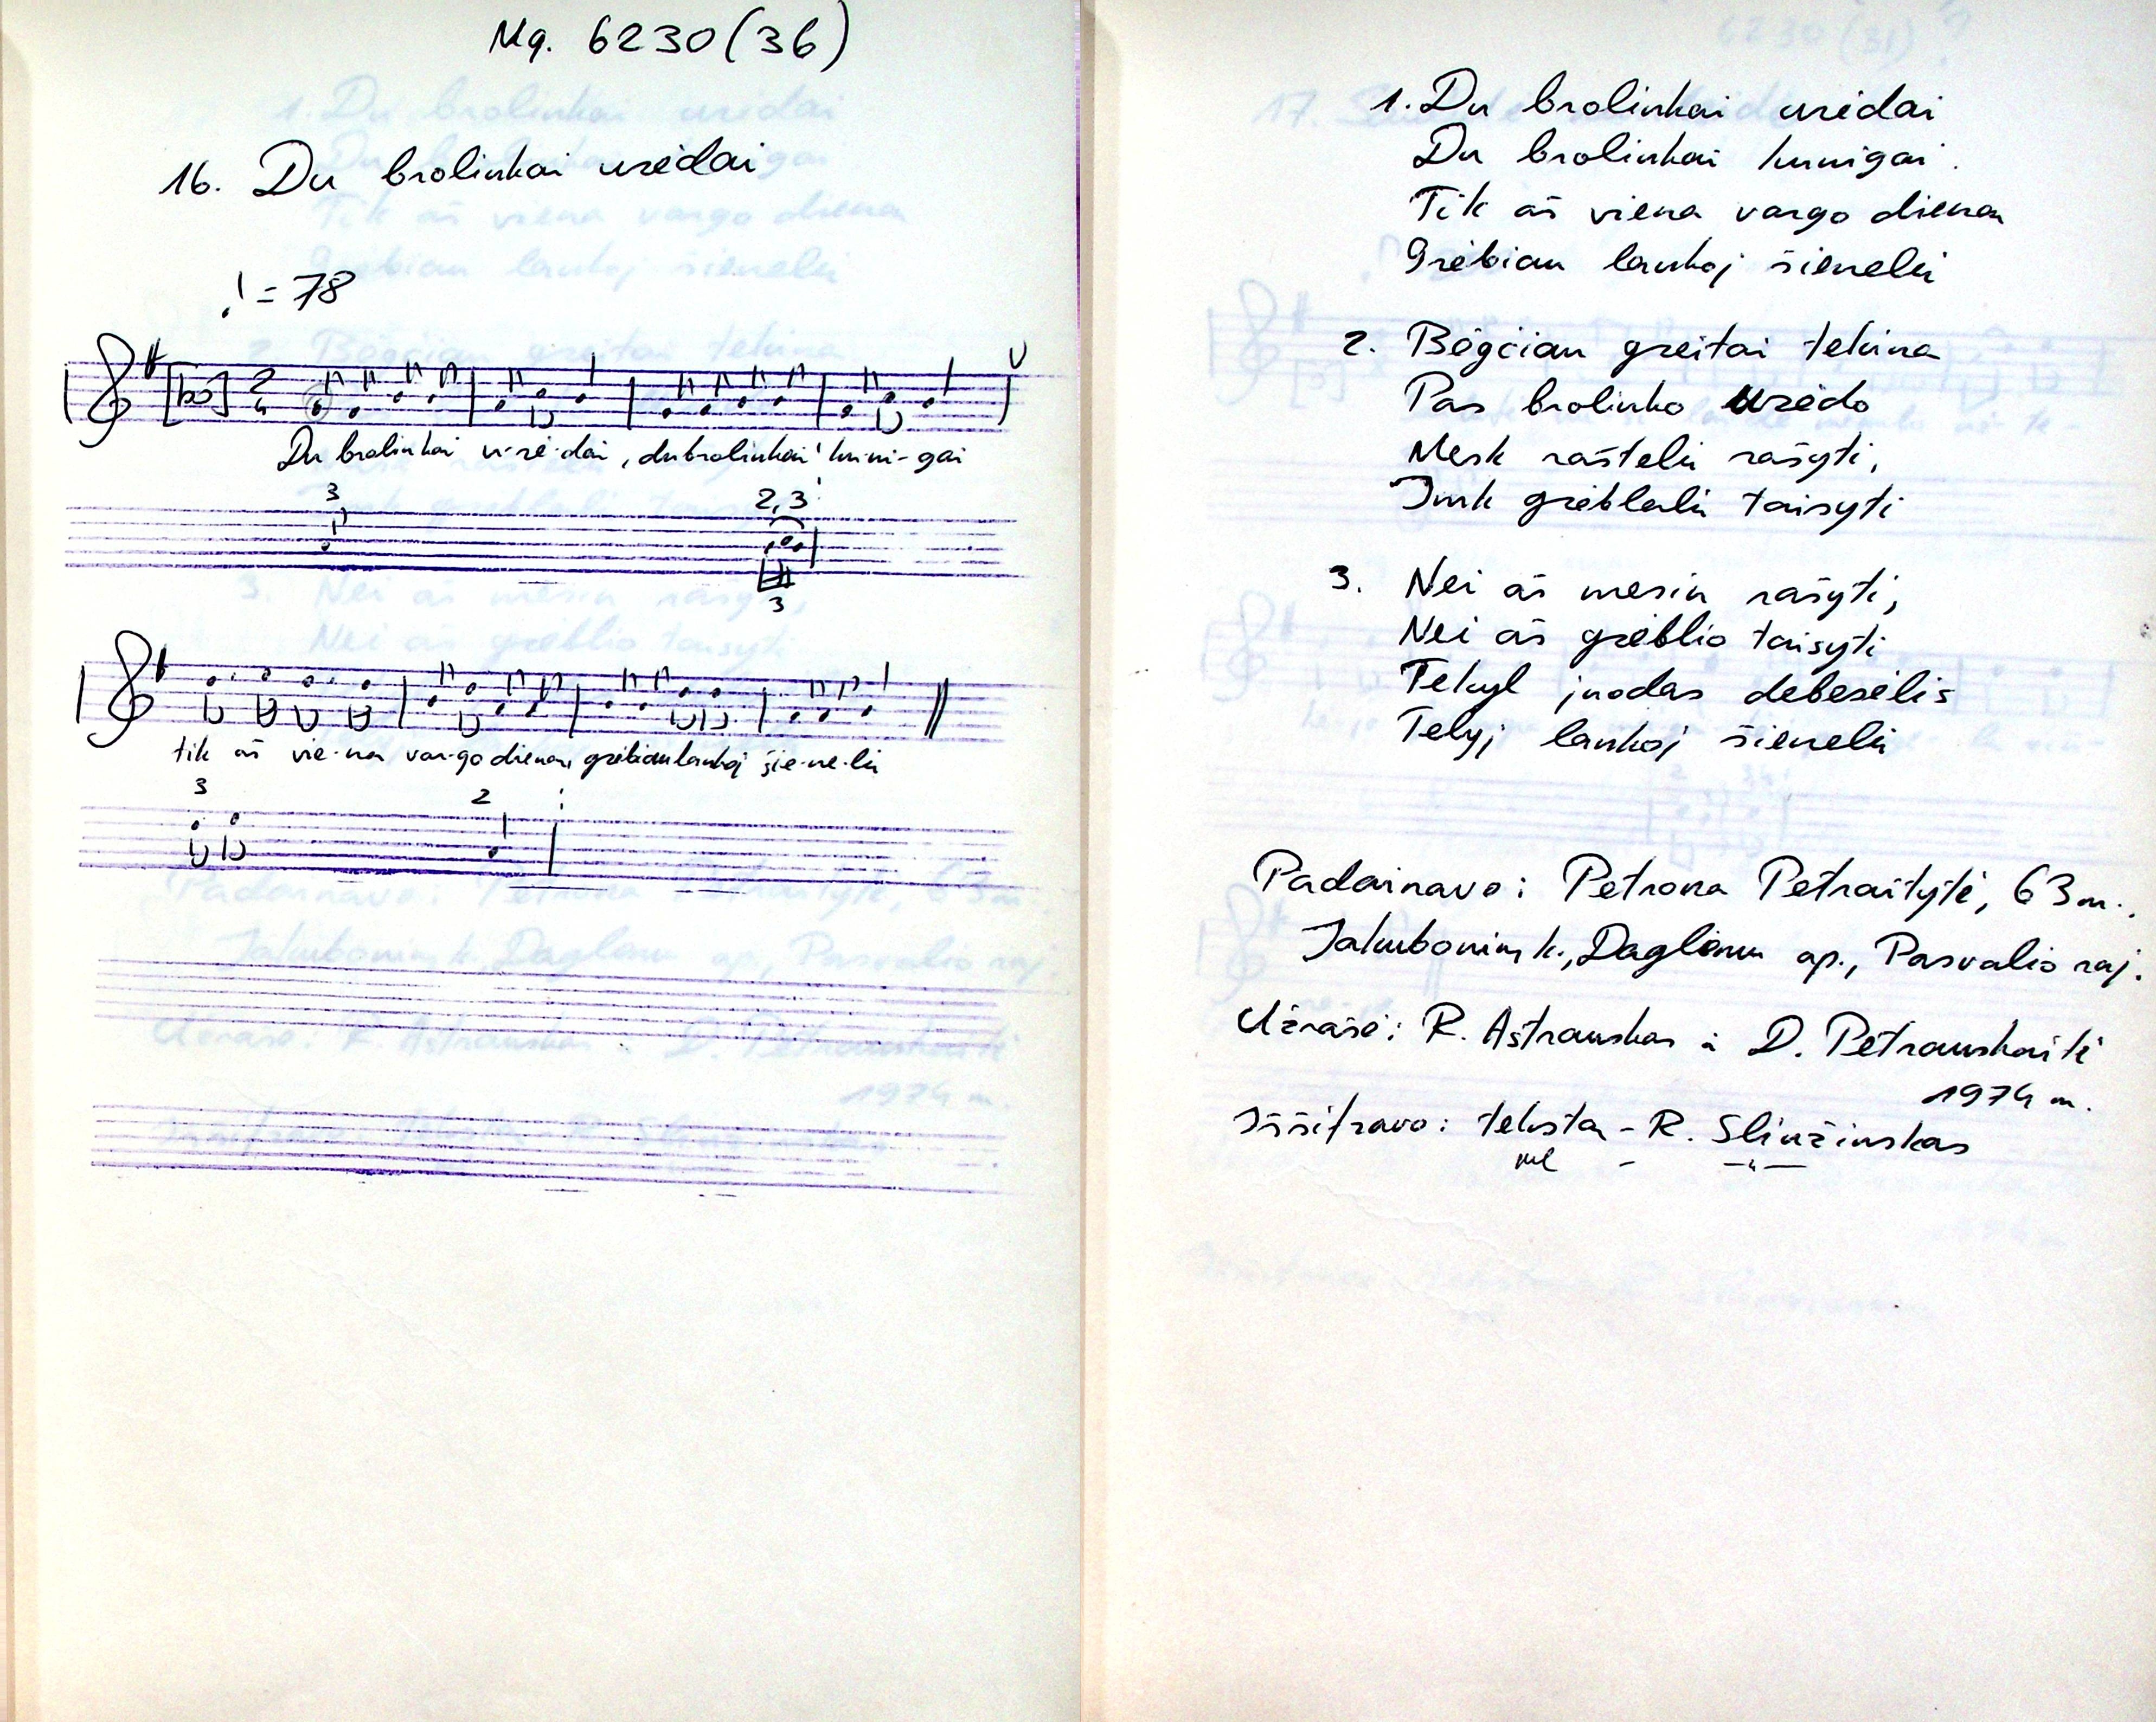 Mg. 6230 (36)
16. Du brolinkai urėdai
♩ = 78
Du brolinkai u-rė-dai, du brolinkai kuni-gai
3
2,3
3
tik aš vie-na var-go diena, grėbiau laukoj šie-ne-lių
3
2
1. Du brolinkai urėdai
Du brolinkai kunigai.
Tik aš viena vargo diena
Grėbiau laukoj šienelių
2. Bėgčiau greitai tekina
Pas brolinko urėdo
Mesk raštelių rašyti,
Imk grėblelių taisyti
3. Nei aš mesiu rašyti,
Nei aš grėblio taisyti
Tekyl juodas debesėlis
Telyj laukoj šienelių
Padainavo: Petrona Petraitytė, 63 m.,
k., ap., Pasvalio raj.
Užrašė: R. Astrauskas ir D. Petrauskaitė
1974 m.
Iššifravo: tekstą - R. Sliužinskas
mel - -"-